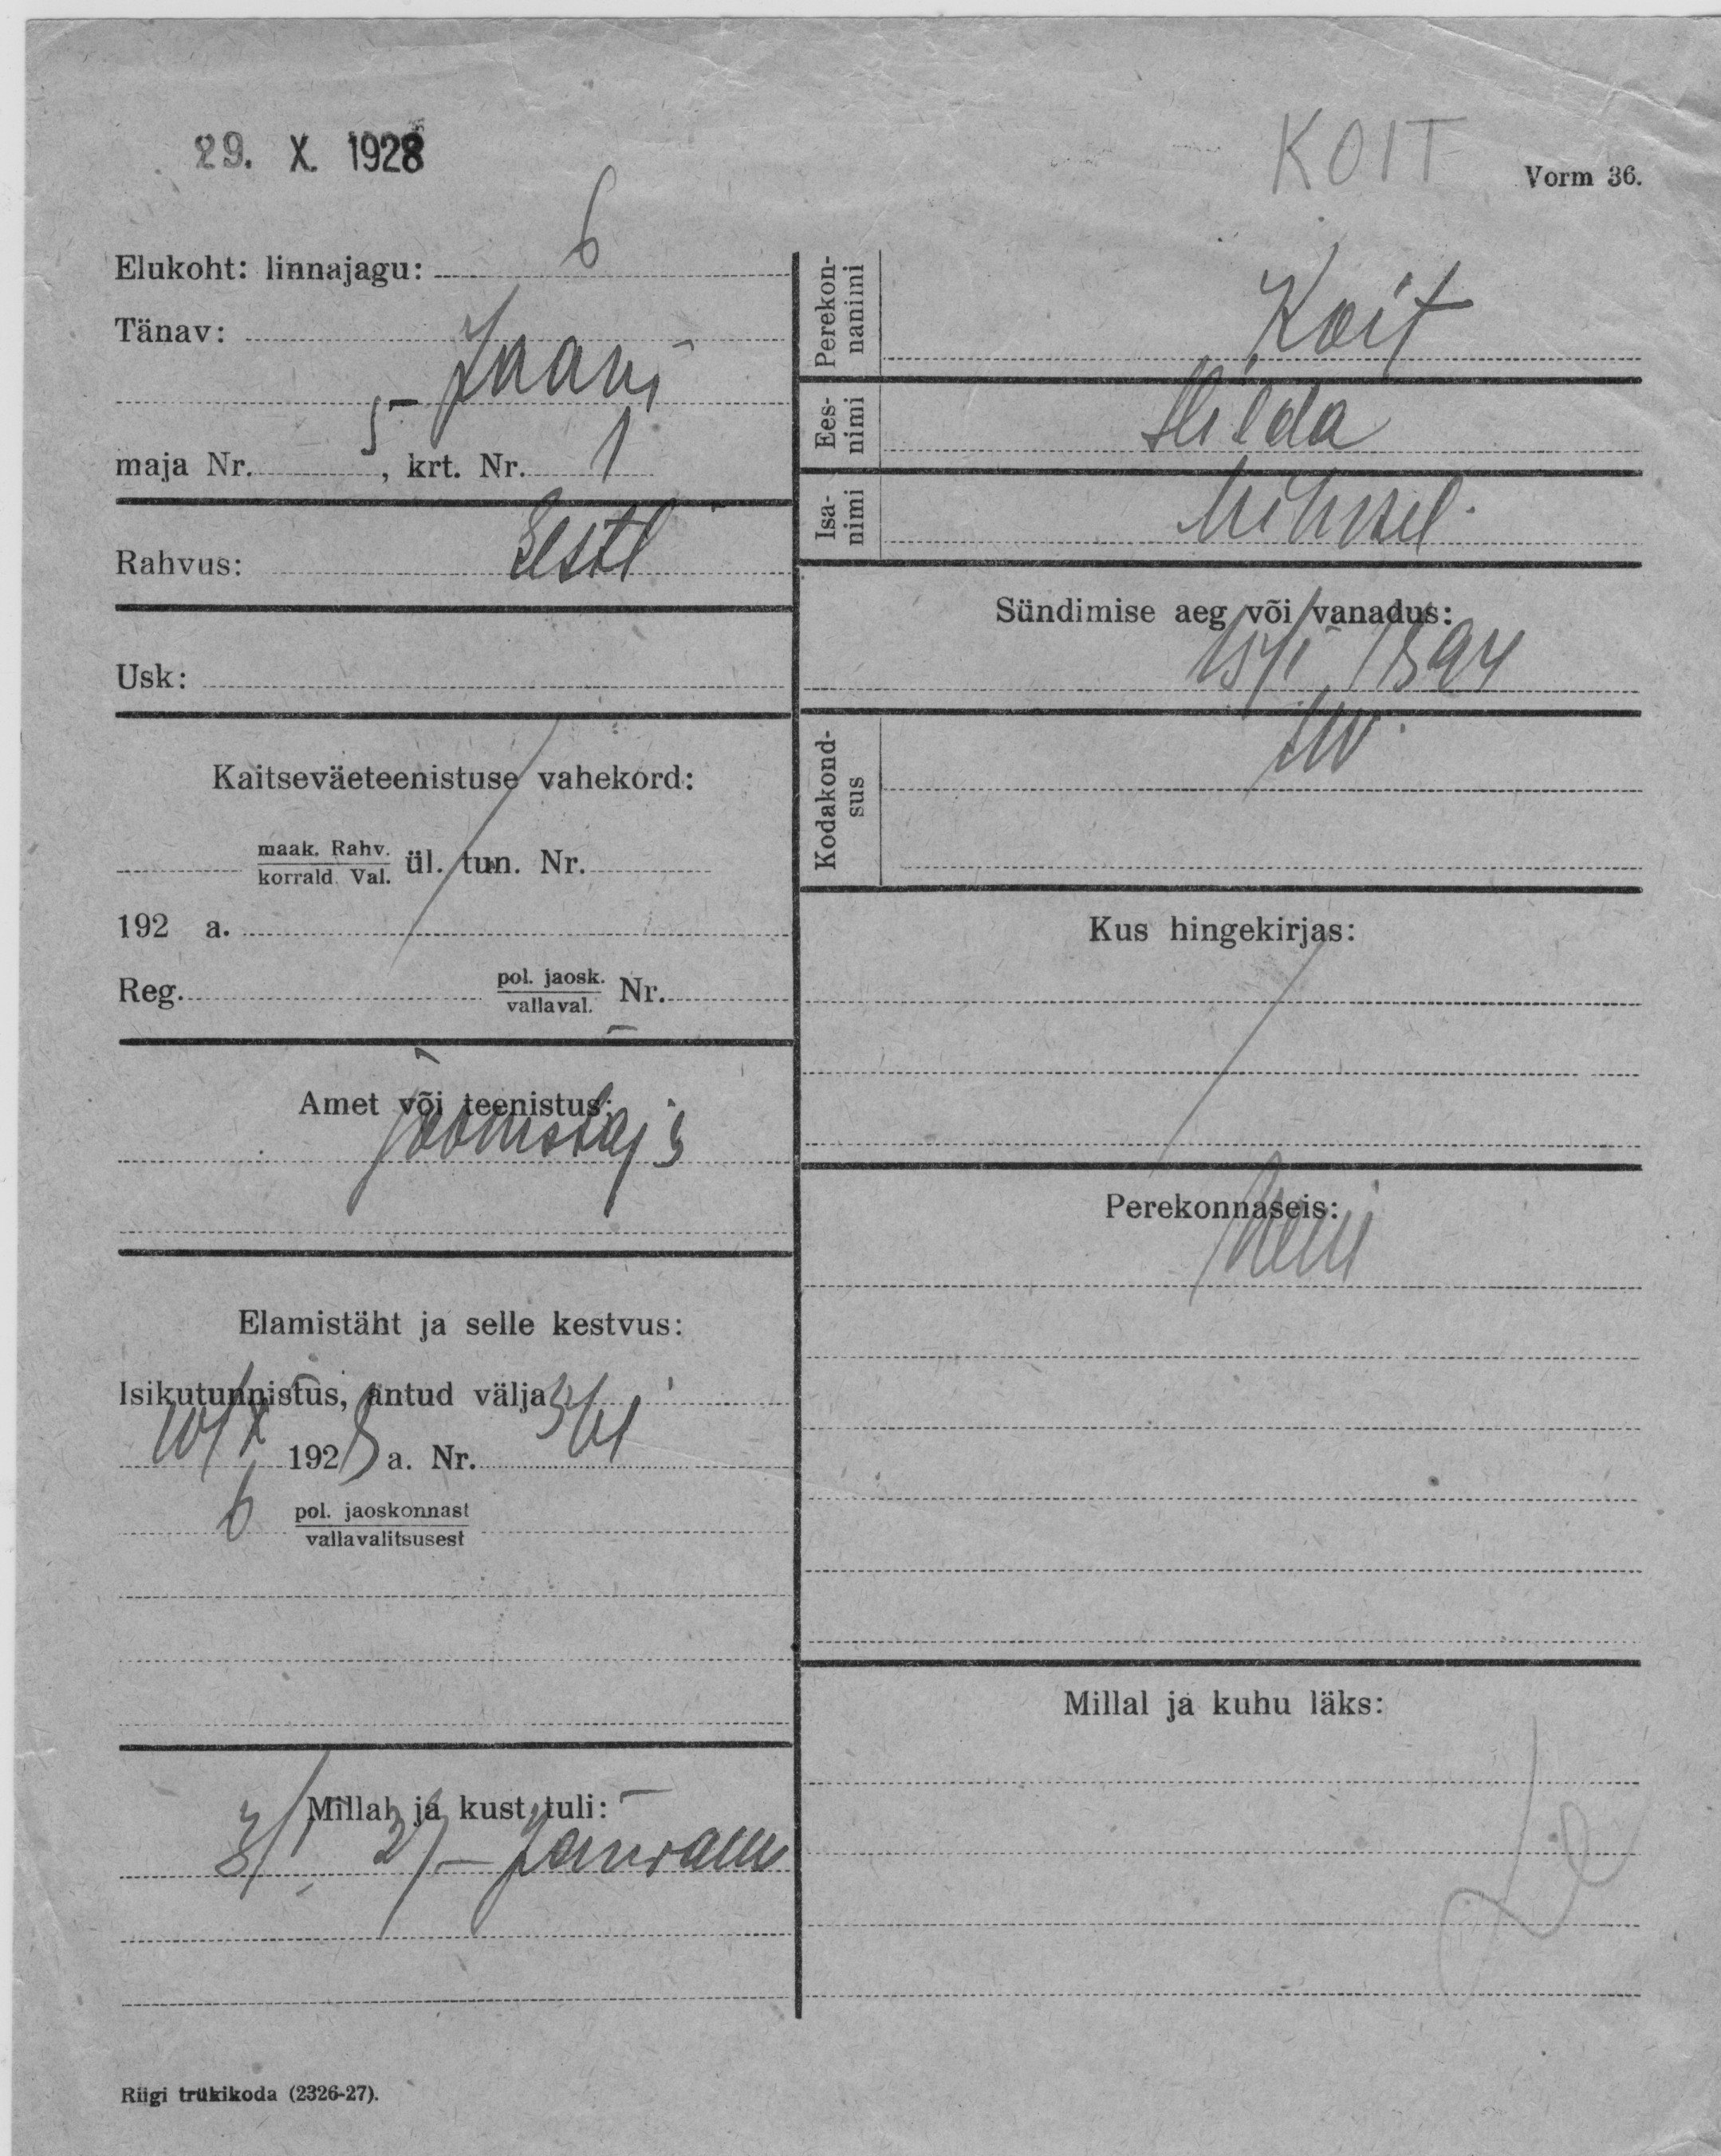 29. X. 1928
KOIT
Vorm 36.
Elukoht: linnajagu: 6
Tänav: Jaani
maja Nr. 5, krt. Nr. 1
Rahvus: Eesti
Usk:
Kaitseväeteenistuse vahekord:
maak. Rahv.
korrald. Val. ül. tun. Nr.
192 a.
Reg. pol. jaosk. Nr.
vallaval.
Amet või teenistus:
joonistaja
Elamistäht ja selle kestvus:
Isikutunnistus, antud välja
10/X 1928 a. Nr.
6 pol. jaoskonnast
vallavalitsusest
Millal ja kust tuli:
27
Riigi trükikoda (2326-27).
Perekon-
nanimi Koit
Ees-
nimi Hilda
Isa-
nimi Mihkel
Sündimise aeg või vanadus:
15/I 1894
Kodakond-
sus
Kus hingekirjas:
Perekonnaseis:
Millal ja kuhu läks: